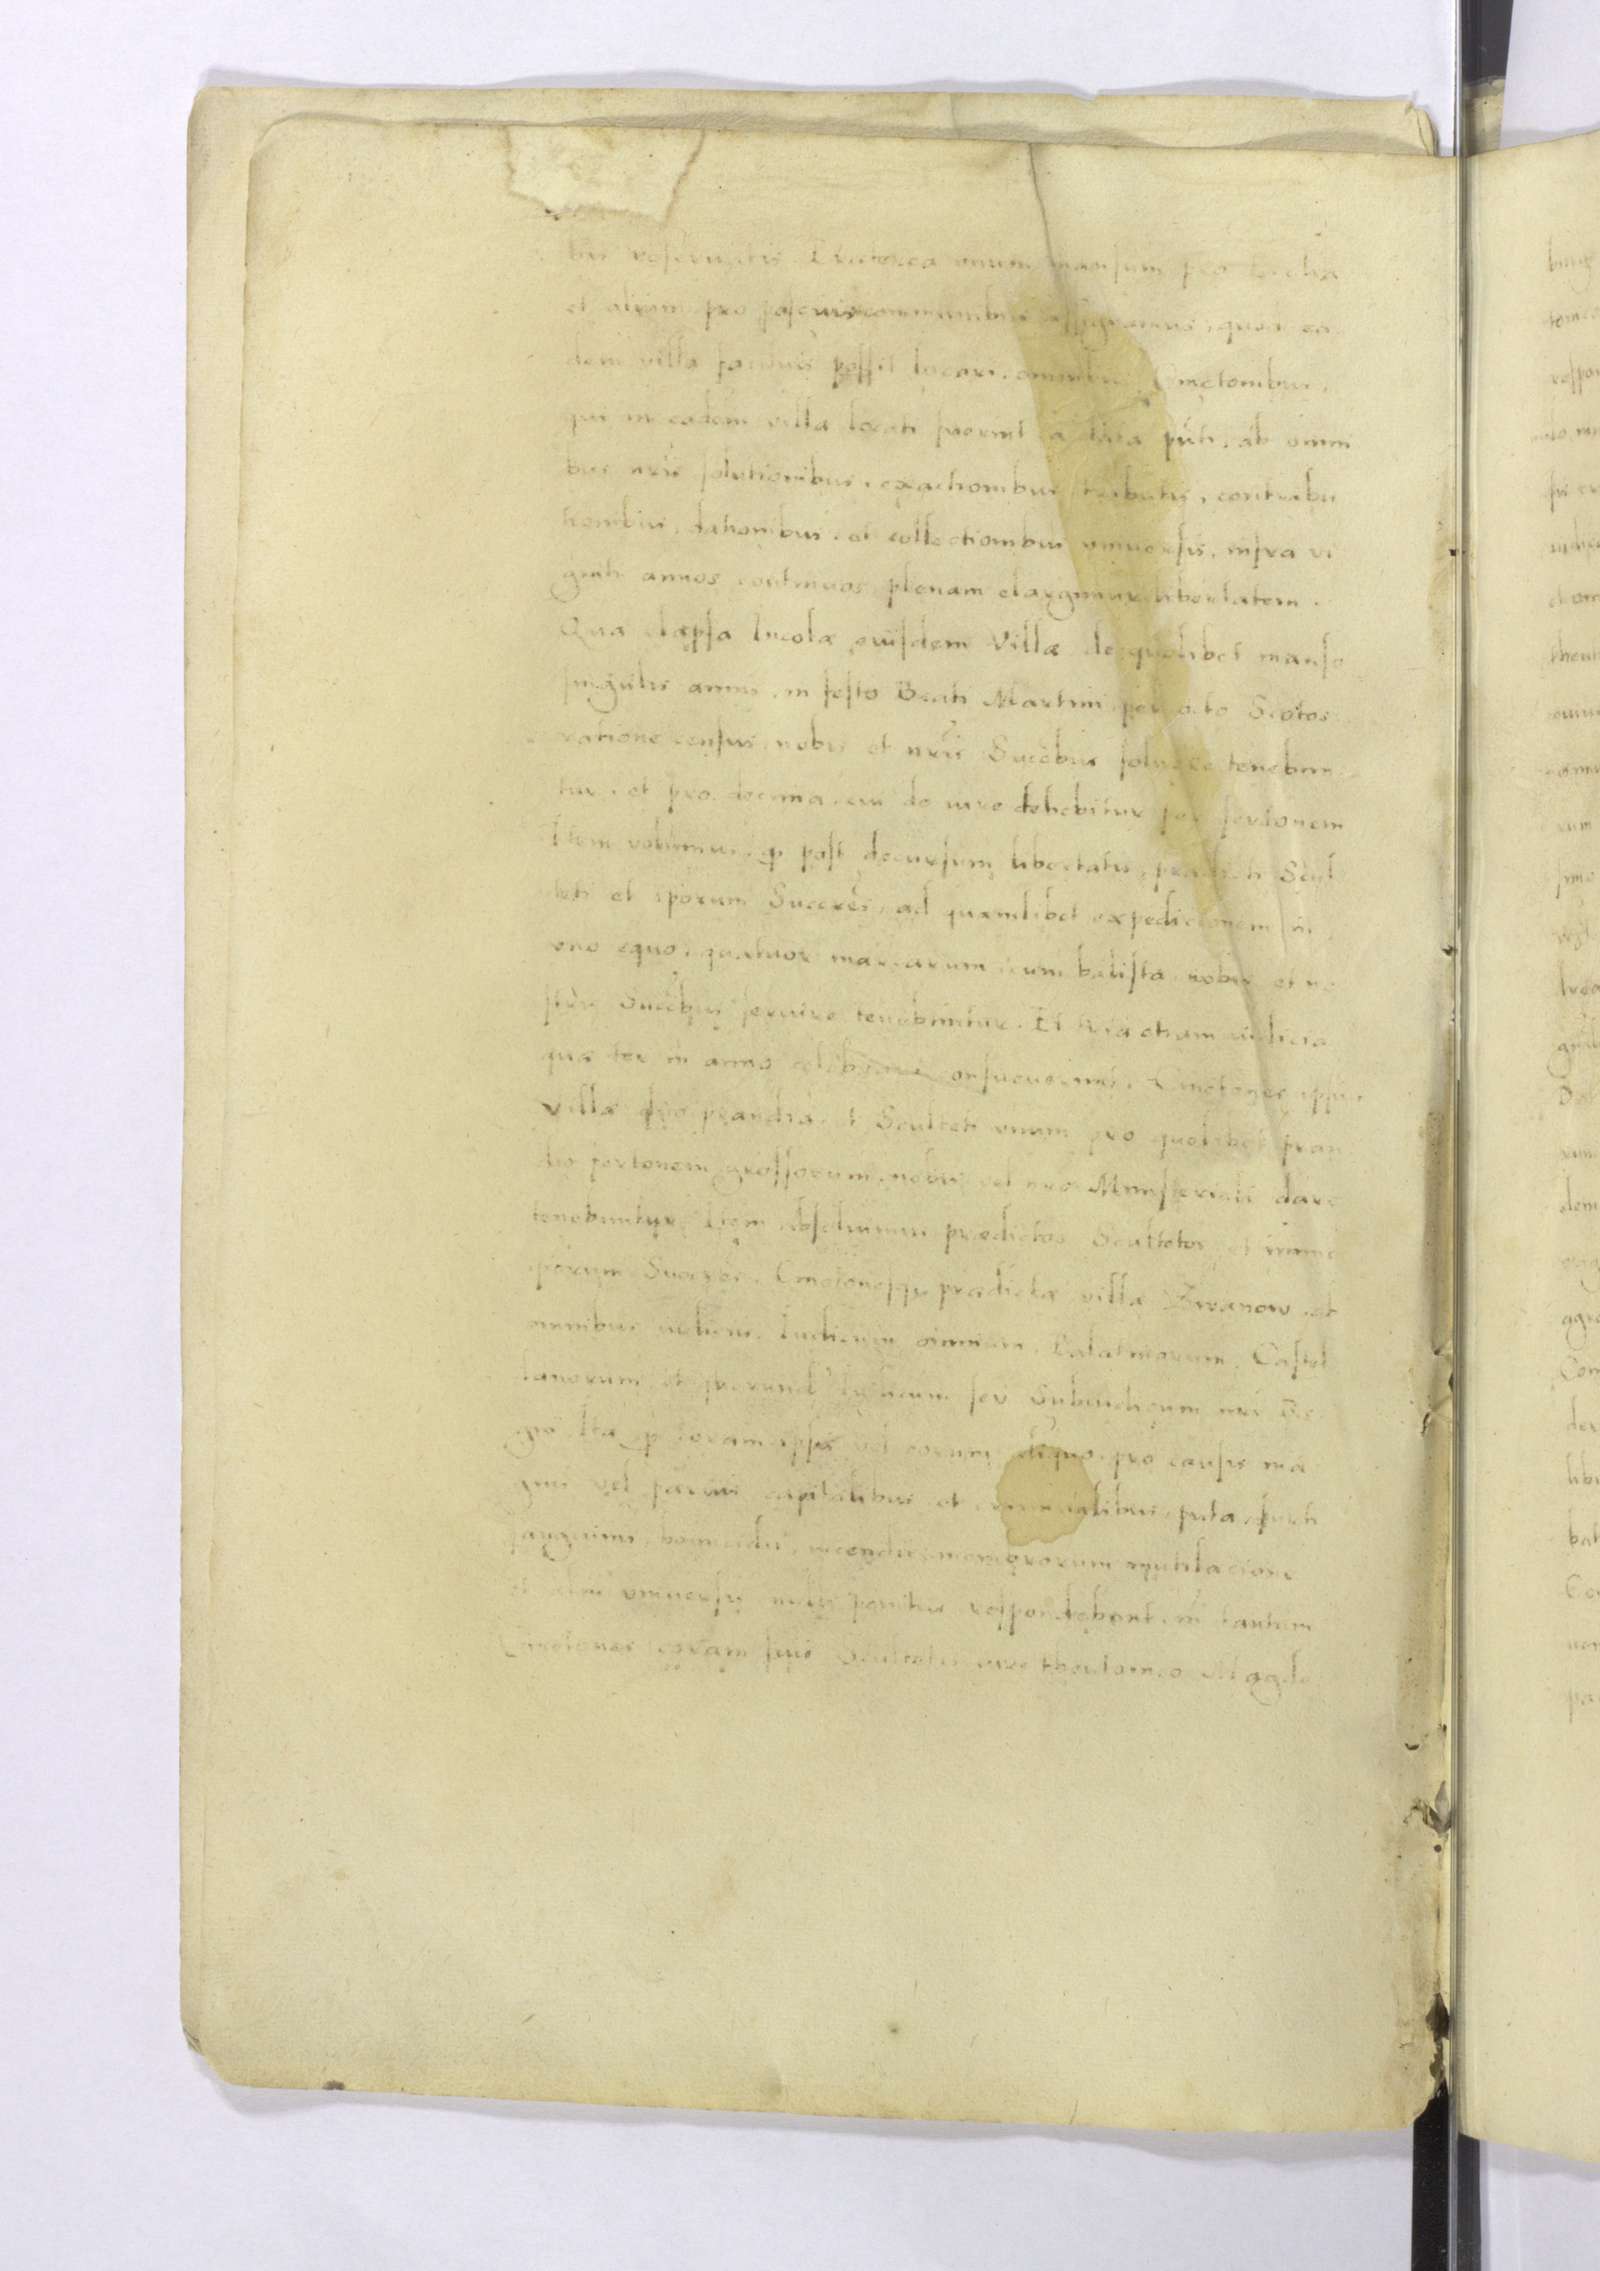 bus reseruatis. Praeterea unum mansum pro Ecclia
et alium pro pascuis communibus assignamus, quod ea
dem villa possit locari, omnibus Cmetonibus,
qui in eadem villa locati fuerint a data pnti, ab omni
bus nris solutionibus, exactionibus tributis, contribu
tionibus, dationibus, et collectionibus vniuersis, infra vi
ginti annos continuos plenam elargimur libertatem.
Qua elapsa Incolæ eiusdem Villæ de quolibet manso
singulis annis, in festo Beati Martini per octo Scotos
ratione census, nobis et nris Succbus soluere tenebun
tur, et pro decima, cui de iure debebitur per fertonem
Item volumus, q post decursum libertatis, prædicti Scul
teti et iporum Succres, ad quamlibet expedicionem in
vno equo, quatuor marcarum cum balista nobis et no
stris Succbus seruire tenebuntur. Et tria etiam iudicia
quæ ter in anno celebrari consueuerunt, Cmetones ipsius
villæ duo prandia, et Sculteti vnum pro quolibet pran
dio fertonem grossorum, nobis vel nro Ministeriali dare
tenebuntur. Item absoluimus prædictos Scultetos et
iporum Succres, Cmetonesq prædictæ villæ Zwanow, ab
omnibus iudiciis, Iudicum omnium, Palatinorum, Castel
lanorum, et Iudicum seu Subiudicum nri Re
gni Ita q coram ipsis vel eorum aliquo, pro causis ma
gnis vel paruis capitalibus et criminalibus, puta, furti
sanguinis, homicidii, incendii, membrorum mutilacione
et aliis vniuersis minime penitus respondebunt, tantum
Cmetones coram suis Scultetis iure theutonico Magde